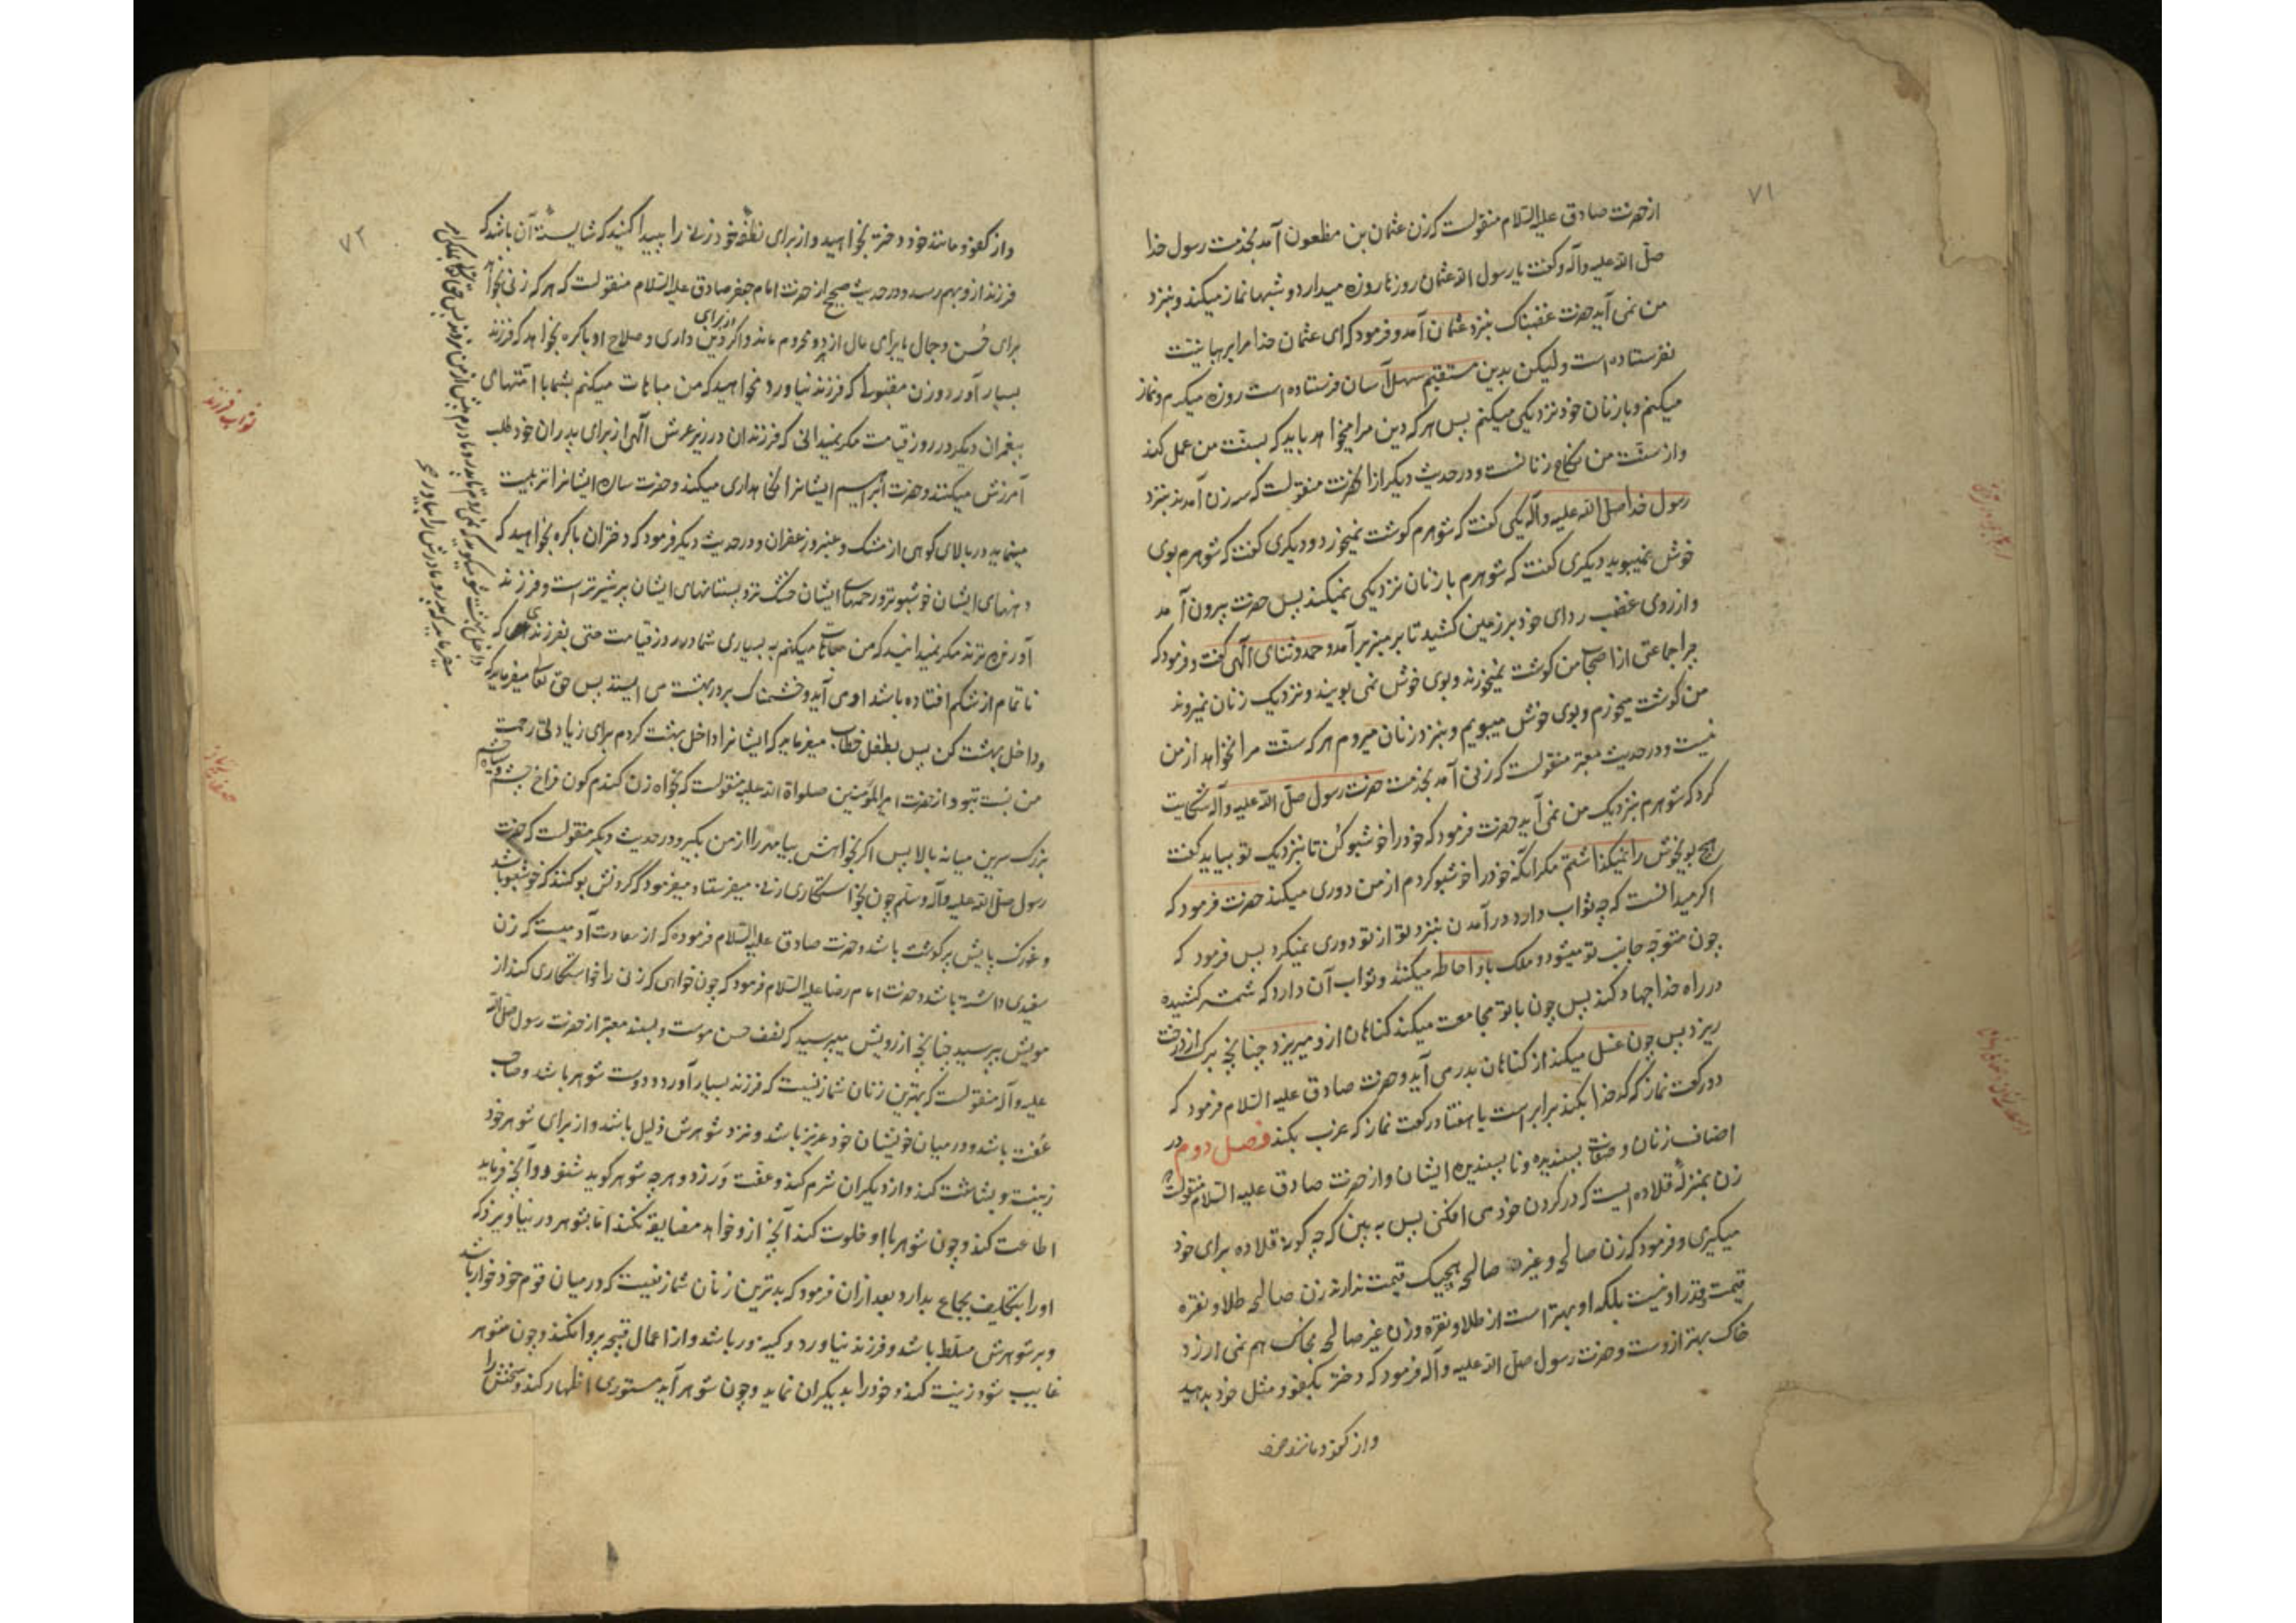 ۷۱
از حضرت صادق علیه السّلام منقولست که زن عثمان بن مظعون آمد بخدمت رسول خدا
صلّی الله علیه وآله و کفت یا رسول الله عثمان روزها روزه میدارد و شبها نماز میکند و بنزد
من نمی آید حضرت غضبناک بنزد عثمان آمد و فرمود که ای عثمان خدا مرا برهبانیّت
نفرستاده است ولیکن بدین مستقیم سهل آسان فرستاده است روزه میکیرم و نماز
میکنم و با زنان خود نزدیکی میکنم پس هر که دین مرا میخواهد باید که بسنّت من عمل کند
و از سنّت من نکاح زنانست و در حدیث دیکر از آنحضرت منقولست که سه زن آمدند بنزد
رسول خدا صلی الله علیه وآله یکی کفت که شوهرم کوشت نمیخورد و دیکری کفت که شوهرم بوی
خوش نمیبوید دیکری کفت که شوهرم با زنان نزدیکی نمیکند پس حضرت بیرون آمد
و از روی غضب ردای خود بر زمین کشید تا بر منبر برآمد و حمد و ثنای آلهی کفت و فرمود که
چرا جماعتی از اصحاب من کوشت نمیخورند و بوی خوش نمی بویند و نزدیک زنان نمیروند
من کوشت میخورم و بوی خوش میبویم و بنزد زنان میروم هر که سنّت مرا نخواهد از من
نیست و در حدیث معتبر منقولست که زنی آمد بخدمت حضرت رسول صلّی الله علیه وآله شکایت
کرد که شوهرم بنزدیک من نمی آید حضرت فرمود که خود را خوشبو کن تا بنزدیک تو بیاید کفت
هیچ بوی خوش را نمیکذاشتم مکر آنکه خود را خوشبو کردم از من دوری میکند حضرت فرمود که
اکر میدانست که چه ثواب دارد در آمدن بنزد تو از تو دوری نمیکرد پس فرمود که
چون متوجّه جانب تو میشود دو ملک باو احاطه میکنند و ثواب آن دارد که شمشیر کشیده
در راه خدا جهاد کند پس چون با تو مجامعت میکند کناهان ازو میریزد چنانچه برک از درخت
ریزد پس چون غسل میکند از کناهان بدر می آید و حضرت صادق علیه السّلام فرمود که
دو رکعت نماز که کدخدا بکند برابر است با هفتاد رکعت نماز که عزب بکند فصل دوم در
اصناف زنان و صفات پسندیده و ناپسندیده ایشان و از حضرت صادق علیه السّلام منقولست که
زن بمنزلهٔ قلاده ایست که در کردن خود می افکنی پس به بین که چه کونه قلاده برای خود
میکیری و فرمود که زن صالحه و غیر صالحه هیچیک قیمت ندارند زن صالحه طلا و نقره
قیمت و قدر او نیست بلکه او بهتر است از طلا و نقره و زن غیر صالحه بخاک هم نمی ارزد
خاک بهتر ازوست و حضرت رسول صلّی الله علیه وآله فرمود که دختر بکفو و مثل خود بدهید
و از کفو و مانند خود
۷۲
و از کفو و مانند خود دختر بخواهید و از برای نطفهٔ خود زنی را پیدا کنید که شایستهٔ آن باشد که
فرزند ازو بهم رسد و در حدیث صحیح از حضرت امام جعفر صادق علیه السّلام منقولست که هر که زنی بخواهد
برای حُسن و جمال یا برای مال از هر دو محروم ماند و اکر از برای دین داری و صلاح او باکره بخواهد که فرزند
بسیار آورد و زن مقبوله که فرزند نیاورد نخواهید که من مباهات میکنم بشما با امّتهای
پیغمبران دیکر در روز قیامت مکر نمیدانی که فرزندان در زیر عرش آلهی از برای پدران خود طلب
آمرزش میکنند و حضرت ابراهیم ایشانرا نکاهداری میکند و حضرت ساره ایشانرا تربیت
مینماید در بالای کوهی از مشک و عنبر و زعفران و در حدیث دیکر فرمود که دختران باکره بخواهید که
دهنهای ایشان خوشبوتر و رحمهای ایشان خشک تر و پستانهای ایشان پر شیرتر است و فرزند
آورنده ترند مکر نمیدانید که من مباهات میکنم به بسیاری شما در روز قیامت حتی بفرزندی که
ناتمام از شکم افتاده باشد او می آید و خشمناک بر در بهشت می ایستد پس حق تعالی میفرماید که
و داخل بهشت کن پس بطفل خطاب میفرماید که ایشانرا داخل بهشت کردم برای زیادتی رحمت
من نسبت بتو و از حضرت امیر المؤمنین صلواة الله علیه منقولست که بخواه زن کندم کون فراخ چشم سیاه چشم
بزرک سرین میانه بالا پس اکر نخواهیش بیا مهر را از من بکیر و در حدیث دیکر منقولست که حضرت
رسول صلّی الله علیه وآله وسلّم چون بخواستکاری زنی میفرستاد میفرمود که کردنش بو کنند که خوشبو باشد
و غوزک پایش پر کوشت باشد و حضرت صادق علیه السّلام فرموده که از سعادت آدمیست که زن
سفیدی داشته باشد و حضرت امام رضا علیه السّلام فرمود که چون خواهی که زنی را خواستکاری کند از
مویش بپرسید چنانچه از رویش میپرسید که نصف حسن موست و بسند معتبر از حضرت رسول صلی الله
علیه وآله منقولست که بهترین زنان شما زنیست که فرزند بسیار آورد و دوست شوهر باشد و صاحب
عفّت باشد و در میان خویشان خود عزیز باشد و نزد شوهرش ذلیل باشد و از برای شوهر خود
زینت و بشاشت کند و از دیکران شرم کند و عفّت ورزد و هر چه شوهر کوید شنود و آنچه فرماید
اطاعت کند و چون شوهر با او خلوت کند آنچه ازو خواهد مضایقه نکند امّا بشوهر در نیاویزد که
او را بتکلیف بجماع بدارد بعد از ان فرمود که بدترین زنان شما زنیست که در میان قوم خود خوار باشد
و بر شوهرش مسلّط باشد و فرزند نیاورد و کینه ور باشد و از اعمال قبیحه پروا نکند و چون شوهر
غایب شود زینت کند و خود را بدیکران نماید و چون شوهر آید مستوری اظهار کند و سخنش را
داخل بهشت شو میکوید که نمیروم تا پدر و مادرم پیش از من نروند پس حق تعالی بملکی امر
میفرماید که پدر و مادرش را بیاور
ثواب فرزند